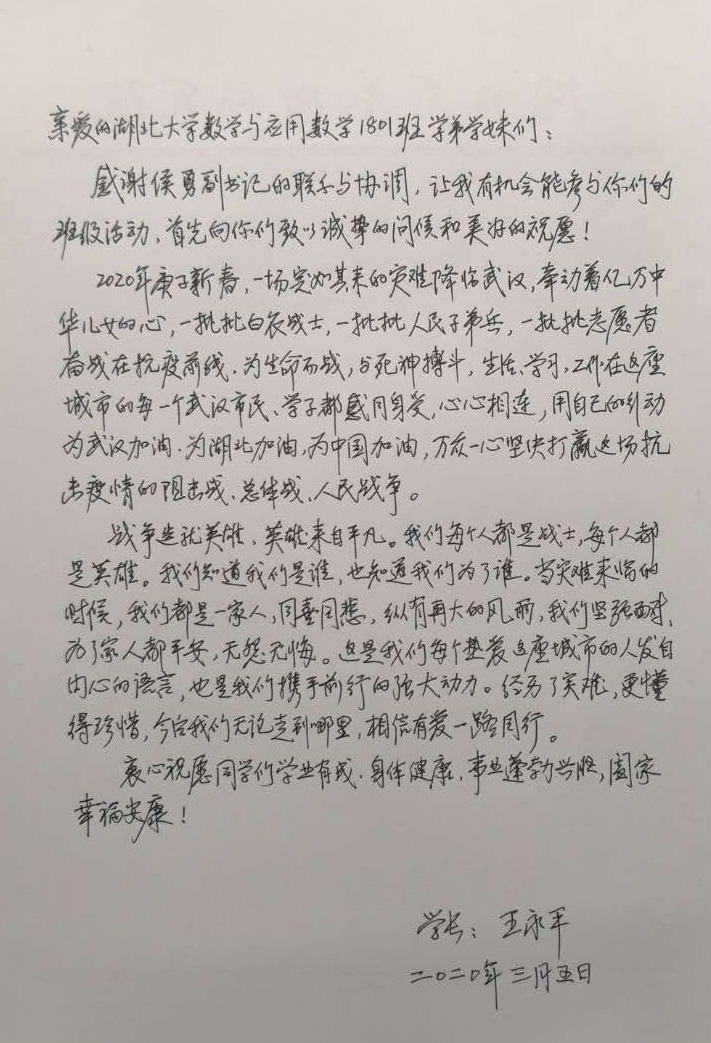 亲爱的湖北大学数学与应用数学1801班学弟学妹们：
感谢侯勇副书记的联系与协调，让我有机会能参与你们的
班级活动，首先向你们致以诚挚的问候和美好的祝愿！
2020年庚子新春，一场突如其来的灾难降临武汉，牵动着亿万中
华儿女的心，一批批白衣战士，一批批人民子弟兵，一批批志愿者
奋战在抗疫前线，为生命而战，与死神搏斗，生活、学习、工作在这座
城市的每一个武汉市民、学子都感同身受，心心相连，用自己的行动
为武汉加油，为湖北加油，为中国加油，万众一心坚决打赢这场抗
击疫情的阻击战、总体战、人民战争。
战争造就英雄，英雄来自平凡。我们每个人都是战士，每个人都
是英雄。我们知道我们是谁，也知道我们为了谁。当灾难来临的
时候，我们都是一家人，同喜同悲，纵有再大的风雨，我们坚强面对，
为了家人都平安，无怨无悔。这是我们每个热爱这座城市的人发自
内心的语言，也是我们携手前行的强大动力。经历了灾难，更懂
得珍惜，今后我们无论走到哪里，相信有爱一路同行。
衷心祝愿同学们学业有成，身体健康，事业蓬勃兴旺，阖家
幸福安康！
学长：王永平
二〇二〇年三月五日